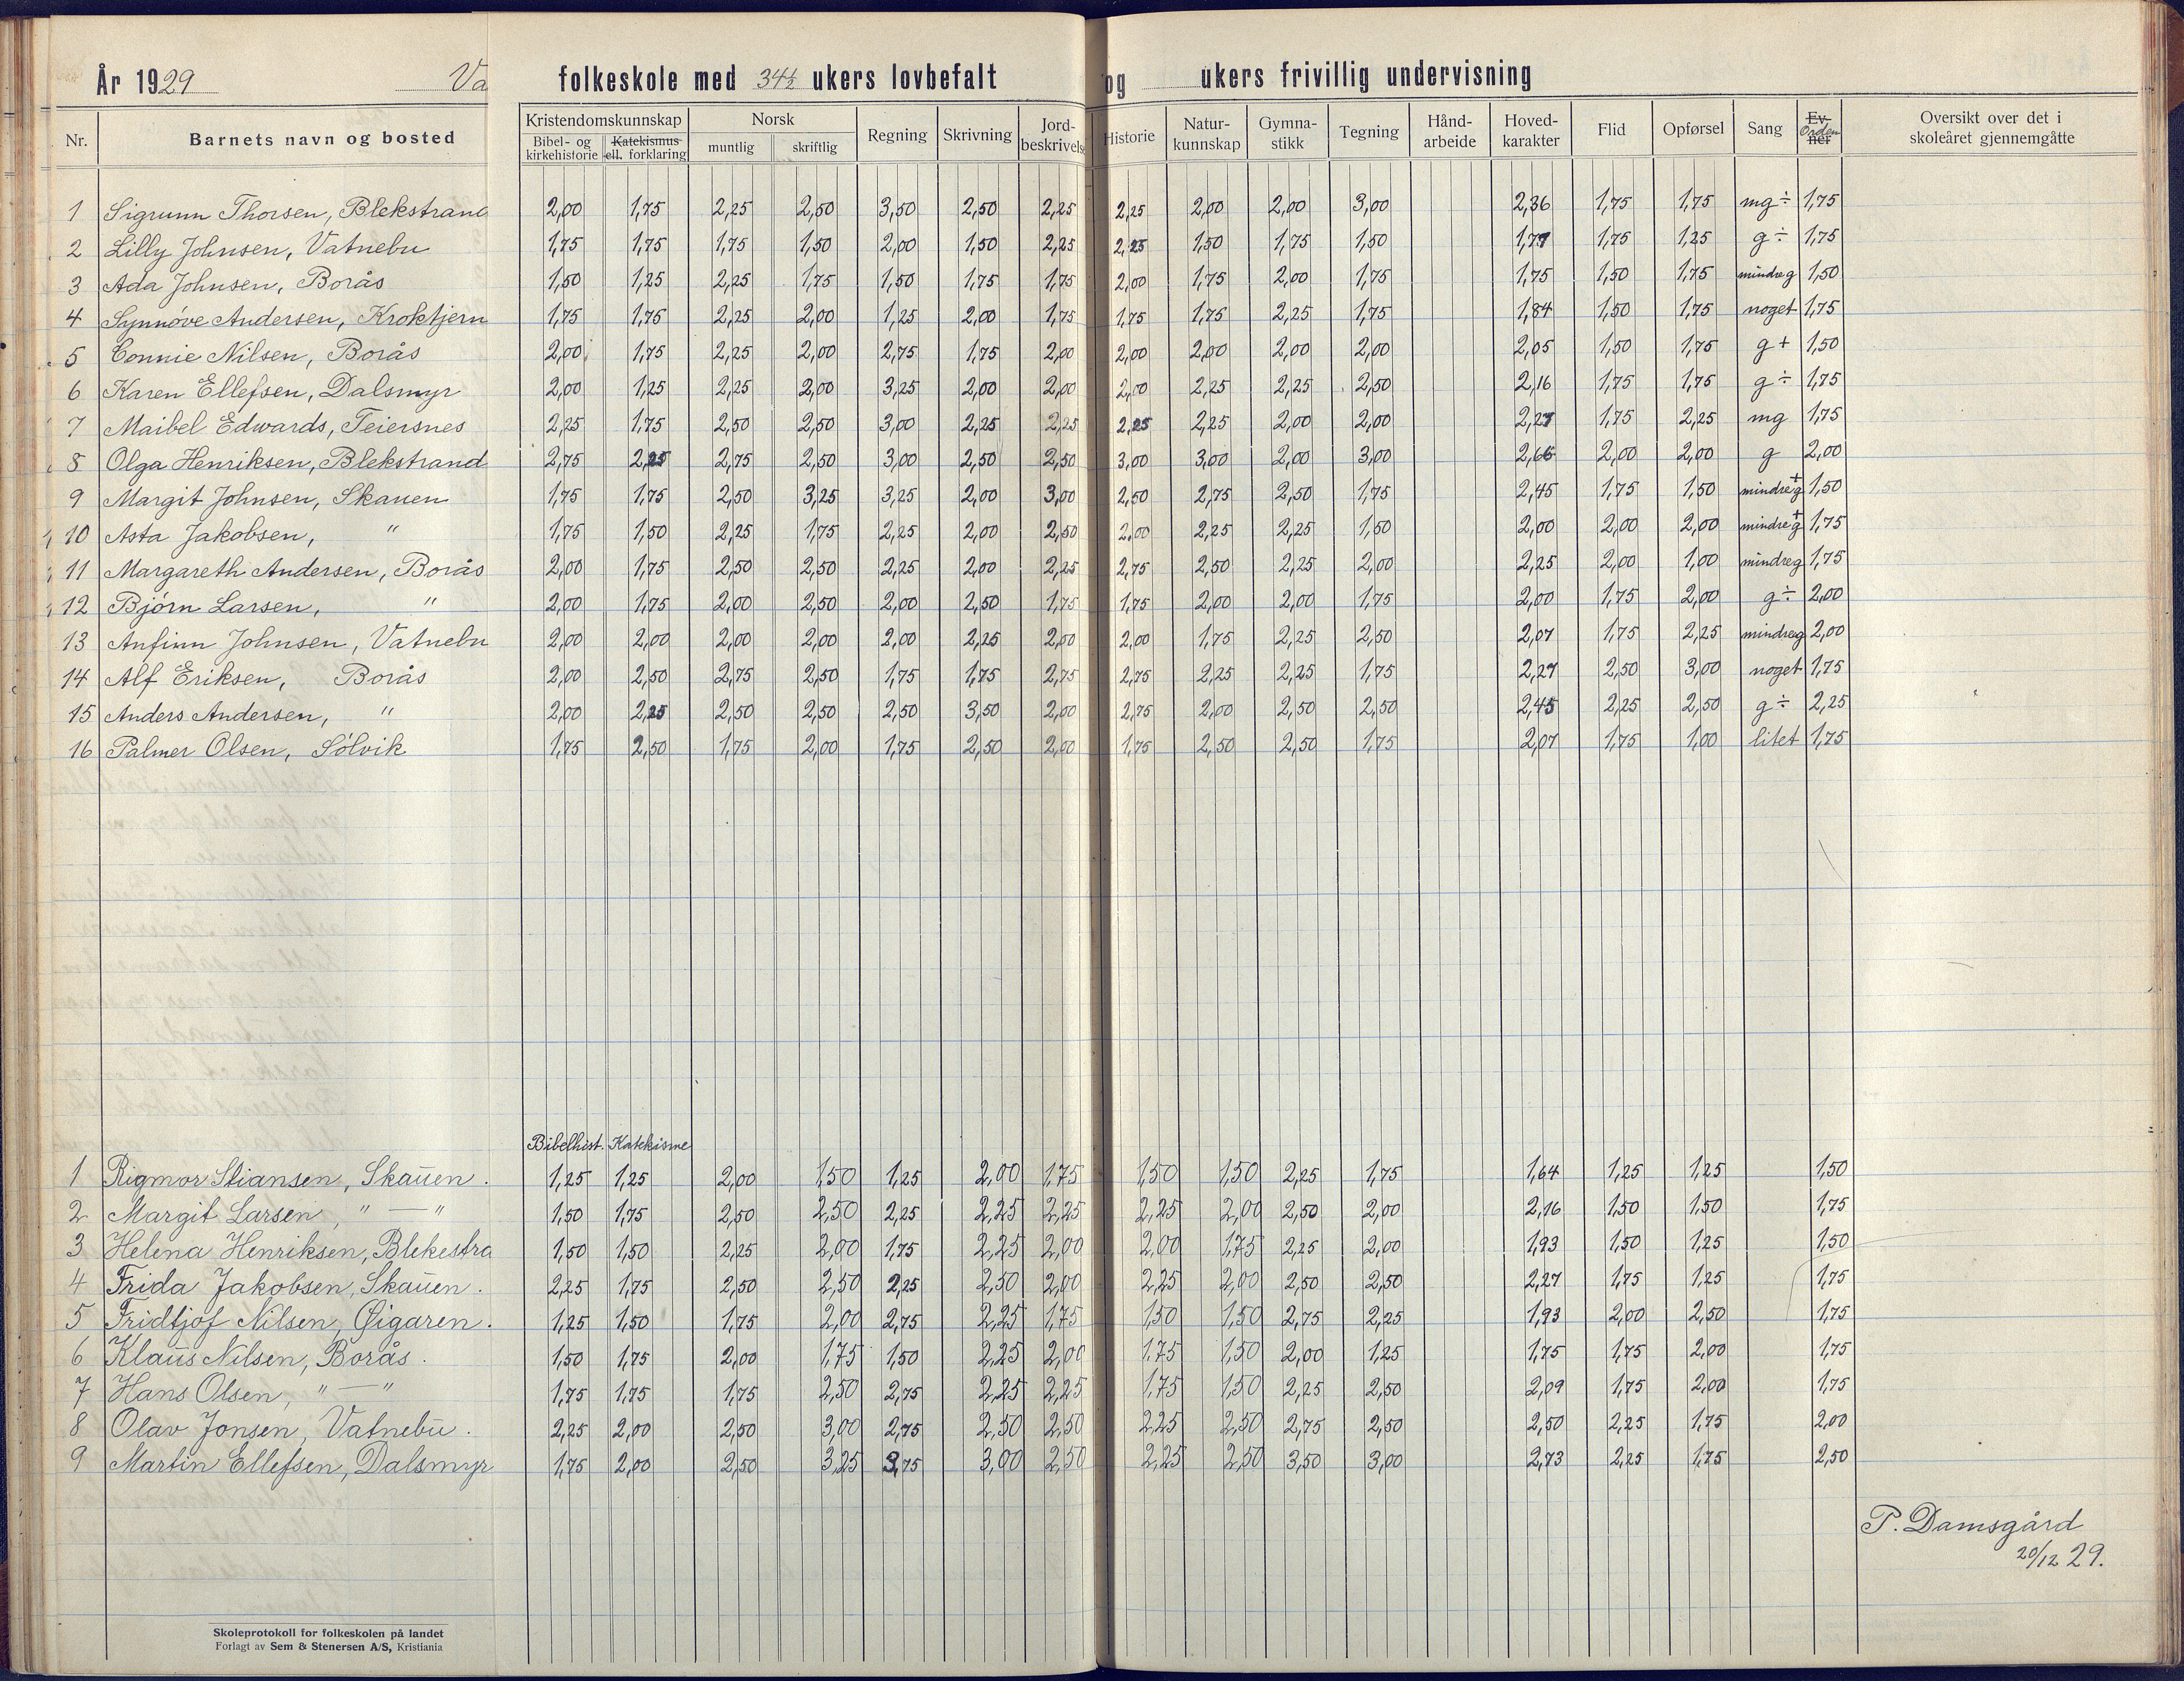 År 1929 Va folkeskole med 34½ ukers lovbefalt og ukers frivillig undervisning
Nr. Barnets navn og bosted Kristendomskunnskap Bibel- og kirkehistorie Katekismus ell. forklaring Norsk muntlig skriftlig Regning Skrivning Jord-beskrivelse Historie Natur-kunnskap Gymna-stikk Tegning Hånd-arbeide Hoved-karakter Flid Opførsel Sang Ev-ner Orden Oversikt over det i skoleåret gjennemgåtte
1 Sigrunn Thorsen, Blekstrand 2,00 1,75 2,25 2,50 3,50 2,50 2,25 2,25 2,00 2,00 3,00 2,36 1,75 1,75 mg÷ 1,75
2 Lilly Johnsen, Vatnebu 1,75 1,75 1,75 1,50 2,00 1,50 2,25 2,25 1,50 1,75 1,50 1,77 1,75 1,25 g÷ 1,75
3 Ada Johnsen, Borås 1,50 1,25 2,25 1,75 1,50 1,75 1,75 2,00 1,75 2,00 1,75 1,75 1,50 1,75 mindre g 1,50
4 Synnöve Andersen, Kroktjern 1,75 1,75 2,25 2,00 1,25 2,00 1,75 1,75 1,75 2,25 1,75 1,84 1,50 1,75 noget 1,75
5 Connie Nilsen, Borås 2,00 1,75 2,25 2,00 2,75 1,75 2,00 2,00 2,00 2,00 2,00 2,05 1,50 1,75 g+ 1,50
6 Karen Ellefsen, Dalsmyr 2,00 1,25 2,25 2,00 3,25 2,00 2,00 2,00 2,25 2,25 2,50 2,16 1,75 1,75 g÷ 1,75
7 Maibel Edwards, Teiersnes 2,25 1,75 2,50 2,50 3,00 2,25 2,25 2,25 2,25 2,00 2,00 2,27 1,75 2,25 mg 1,75
8 Olga Henriksen, Blekstrand 2,75 2,25 2,75 2,50 3,00 2,50 2,50 3,00 3,00 2,00 3,00 2,66 2,00 2,00 g 2,00
9 Margit Johnsen, Skauen 1,75 1,75 2,50 3,25 3,25 2,00 3,00 2,50 2,75 2,50 1,75 2,45 1,75 1,50 mindre g+ 1,50
10 Asta Jakobsen, " 1,75 1,50 2,25 1,75 2,25 2,00 2,50 2,00 2,25 2,25 1,50 2,00 2,00 2,00 mindre g+ 1,75
11 Margareth Andersen, Borås 2,00 1,75 2,50 2,50 2,25 2,00 2,25 2,75 2,50 2,25 2,00 2,25 2,00 1,00 mindre g 1,75
12 Bjørn Larsen, " 2,00 1,75 2,00 2,50 2,00 2,50 1,75 1,75 2,00 2,00 1,75 2,00 1,75 2,00 g÷ 2,00
13 Anfinn Johnsen, Vatnebu 2,00 2,00 2,00 2,00 2,00 2,25 2,00 2,00 1,75 2,25 2,50 2,07 1,75 2,25 mindre g 2,00
14 Alf Eriksen, Borås 2,00 2,50 2,75 2,50 1,75 1,75 2,75 2,75 2,25 2,25 1,75 2,27 2,50 3,00 noget 1,75
15 Anders Andersen, " 2,00 2,25 2,50 2,50 2,50 3,50 2,00 2,75 2,00 2,50 2,50 2,45 2,25 2,50 g÷ 2,25
16 Palmer Olsen, Sölvik 1,75 2,50 1,75 2,00 1,75 2,50 2,00 1,75 2,50 2,50 1,75 2,07 1,75 1,00 litet 1,75
Bibelhist. Katekisme
1 Rigmor Stiansen, Skauen. 1,25 1,25 2,00 1,50 1,25 2,00 1,75 1,50 1,50 2,25 1,75 1,64 1,25 1,25 1,50
2 Margit Larsen, " — " 1,50 1,75 2,50 2,50 2,25 2,25 2,25 2,25 2,00 2,50 2,00 2,16 1,50 1,50 1,75
3 Helena Henriksen, Blekestra 1,50 1,50 2,25 2,00 1,75 2,25 2,00 2,00 1,75 2,25 2,00 1,93 1,50 1,25 1,50
4 Frida Jakobsen, Skauen. 2,25 1,75 2,50 2,50 2,25 2,50 2,00 2,25 2,00 2,50 2,50 2,27 1,75 1,25 1,75
5 Fridtjof Nilsen, Øigaren. 1,25 1,50 1,75 2,00 2,75 2,25 1,75 1,50 1,50 2,75 2,25 1,93 2,00 2,50 1,75
6 Klaus Nilsen, Borås. 1,50 1,75 2,00 1,75 1,50 2,25 2,00 1,75 1,50 2,00 1,25 1,75 1,75 2,00 1,75
7 Hans Olsen, " — " 1,75 1,75 1,75 2,50 2,75 2,25 2,25 1,75 1,50 2,25 2,50 2,09 1,75 2,00 1,75
8 Olav Jonsen, Vatnebu. 2,25 2,00 2,50 3,00 2,75 2,50 2,50 2,25 2,50 2,75 2,50 2,50 2,25 1,75 2,00
9 Martin Ellefsen, Dalsmyr 1,75 2,00 2,50 3,25 3,75 3,00 2,50 2,25 2,50 3,50 3,00 2,73 2,25 1,75 2,50
P. Damsgård
20/12 29.
Skoleprotokoll for folkeskolen på landet
Forlagt av Sem & Stenersen A/S, Kristiania